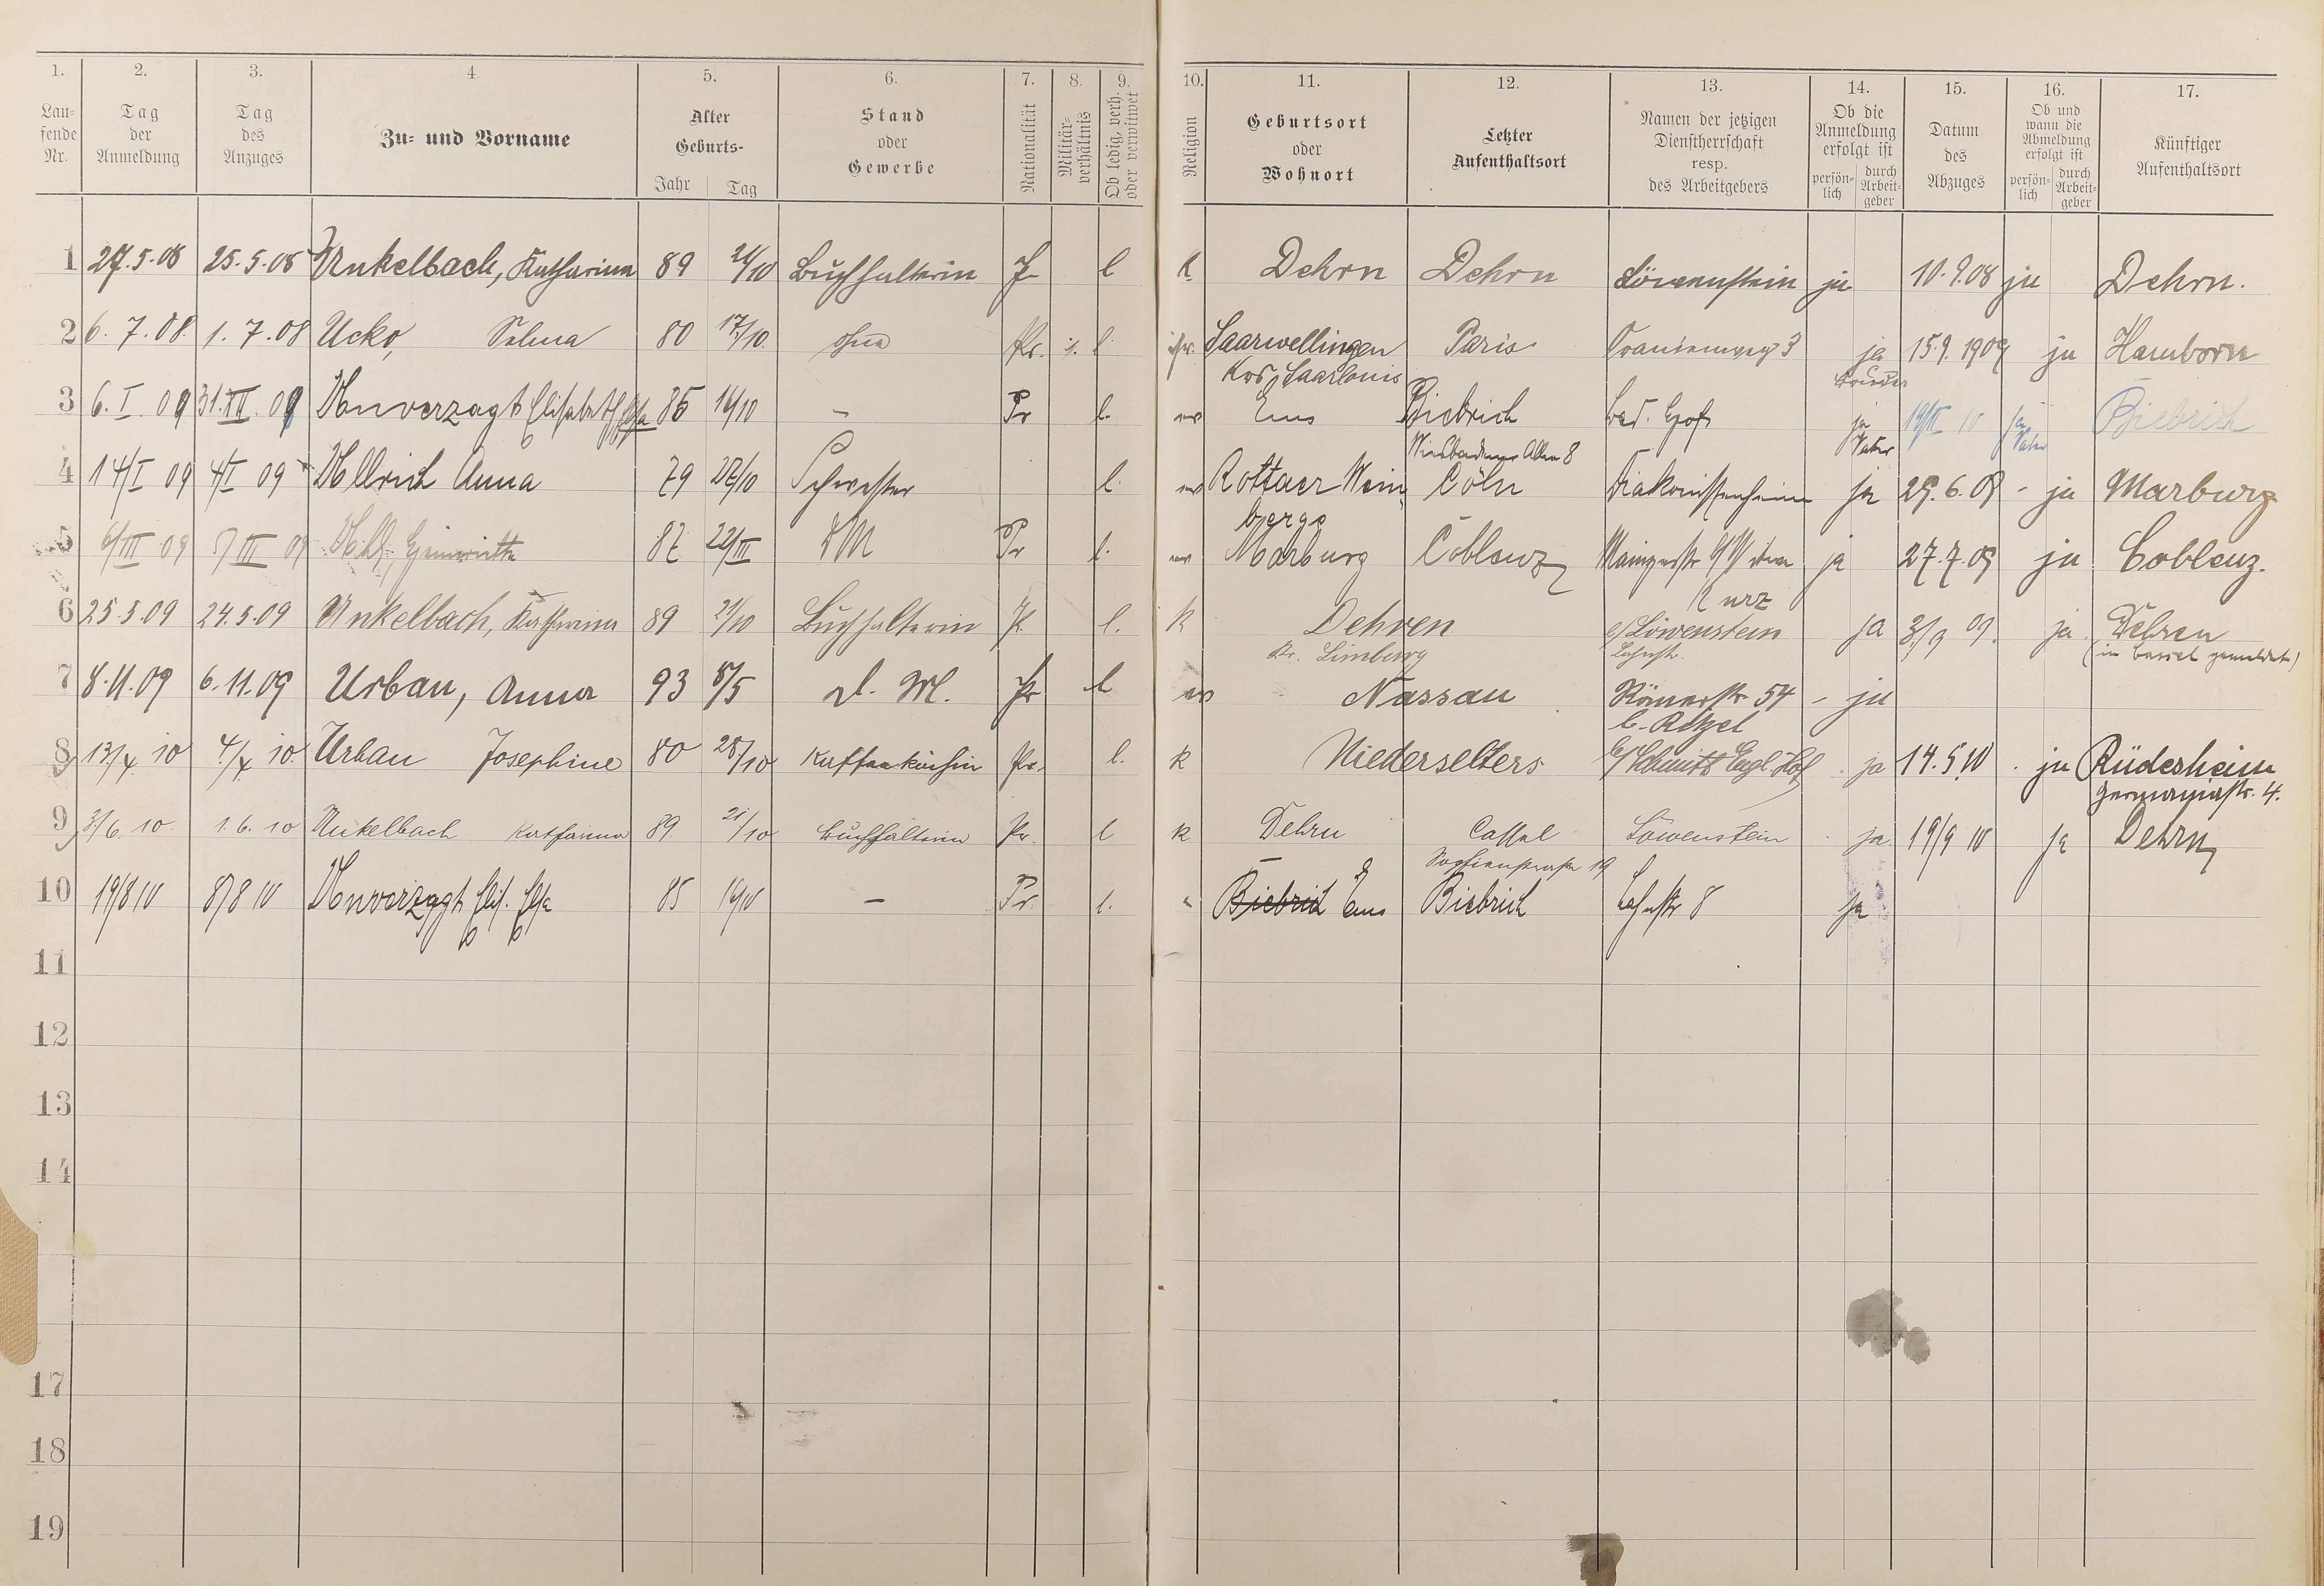 1. 2. 3. 4. 5. 6. 7. 8. 9. 10. 11. 12. 13. 14. 15. 16. 17.
Lau-
fende
Nr.
Tag
der
Anmeldung
Tag
des
Anzuges
Zu- und Vorname
Alter
Geburts-
Jahr Tag
Stand
oder
Gewerbe
Nationalität
Militär-
verhältnis
Ob ledig, verh.
oder verwitwet
Religion
Geburtsort
oder
Wohnort
Letzter
Aufenthaltsort
Namen der jetzigen
Dienstherrschaft
resp.
des Arbeitgebers
Ob die
Anmeldung
erfolgt ist
persön-
lich
durch
Arbeit-
geber
Datum
des
Abzuges
Ob und
wann die
Abmeldung
erfolgt ist
persön-
lich
durch
Arbeit-
geber
Künftiger
Aufenthaltsort
1 27.5.08 25.5.08 Unkelbach, Katharina 89 21/10 Buchhalterin l k Dehrn Dehrn Löwenstein ja 10.9.08 ja Dehrn.
2 6.7.08. 1.7.08 Ucko, Selma 80 17/10. ohne Pr. l. isr. Saarwellingen Paris Oranienweg 3 ja 15.9.1909 ja Hamborn
Krs. Saarlouis Bruder
3 6.I.09 31.XII.09 Unverzagt Elisabeth Elsa 85 14/10 – Pr l. ev Ems Biebrich Bad. Hof ja 19/II 10 ja Biebrich
Wiesbadener Allee 8 Vater Vater
4 14/I 09 4/I 09 Ullrich Anna 79 Schwester l. ev Rottaer Wein Cöln Diakonissenheim ja 29.6.09 - ja Marburg
berge
5 6/III 09 5/III 09 87 22/III DM Pr l. ev Marburg Coblenz Mainzerstr ja 27.7.09 ja Coblenz.
Kurz
6 25.5.09 24.5.09 Unkelbach, Katharina 89 21/10 Buchhalterin Pr. l. k Dehren b/Löwenstein ja 3/9 09. ja Dehren
Kr. Limburg Lahnstr. (in Cassel gemeldet)
7 8.11.09 6.11.09 Urban, Anna 93 8/5 D. M. Pr l ev Nassau Römerstr. 54 - ja
b. Ritzel
8 13/4. 10 4/4 10. Urban Josephine 80 28/10 Kaffeeköchin Pr. l. k Niederselters b/ Schmitt Engl. Hof ja 14.5.10 . ja Rüdesheim
Germaniastr. 4.
9 3/6. 10. 1.6.10 Unkelbach Katharina 89 21/10 Buchhalterin Pr. l k Dehrn Cassel Löwenstein ja. 19/9 10 ja Dehrn
Sophienstrasse 19
10 19/8 10 8/8 10 Unverzagt Elis. Elsa 85 14/10 – Pr. l. Biebrich Ems Biebrich Lahnstr 8 ja
11
12
13
14
17
18
19